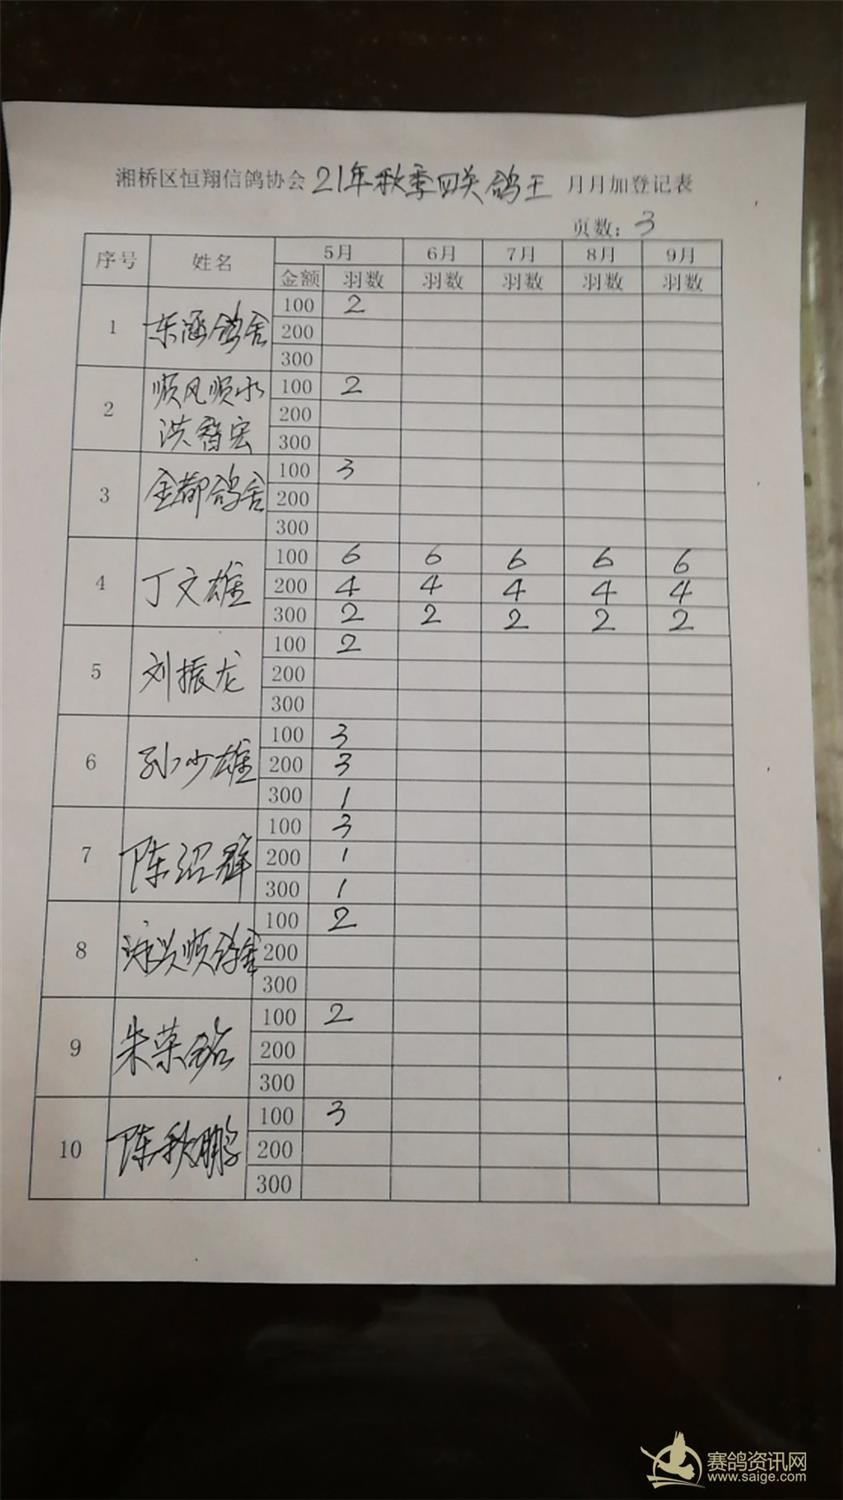 湘桥区恒翔信鸽协会 21年秋季四关鸽王 月月加登记表
页数：3
序号 姓名 5月 6月 7月 8月 9月
金额 羽数 羽数 羽数 羽数 羽数
1 东涵鸽舍 100 2
200
300
2 顺风顺水 洪智宏 100 2
200
300
3 金都鸽舍 100 3
200
300
4 丁文雄 100 6 6 6 6 6
200 4 4 4 4 4
300 2 2 2 2 2
5 刘振龙 100 2
200
300
6 孙少雄 100 3
200 3
300 1
7 陈绍群 100 3
200 1
300 1
8 兴顺鸽舍 100 2
200
300
9 朱荣 100 2
200
300
10 陈秋鹏 100 3
200
300
赛鸽资讯网
www.saige.com